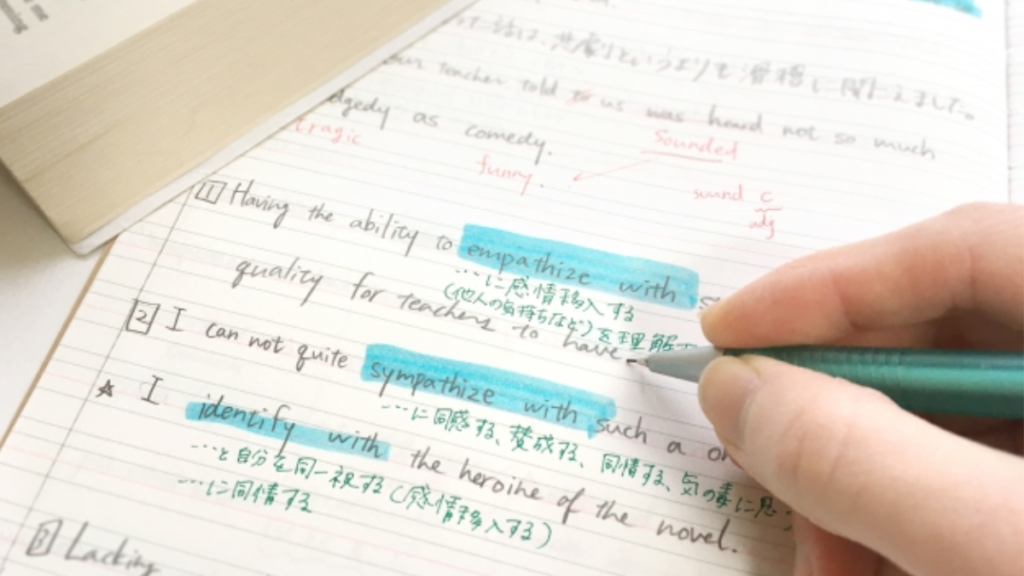 て話は、共感するというよりも滑稽に聞こえました。
teacher told to us was heard not so much
Sounded
as comedy.
tragic
funny.
sound C
adj
[1] Having the ability to empathize with
…に感情移入する
(他人の気持ちなど)を理解
quality for teachers to have
[2] I can not quite sympathize with such a
…に同感する、賛成する、同情する、気の毒に思
☆ I identify with the heroine of the novel.
…と自分を同一視する(感情移入する)
…に同情する
[3] Lacking